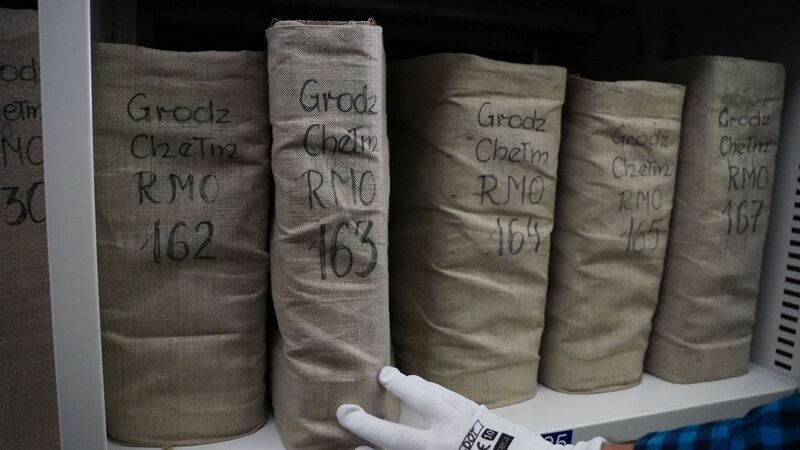 odz
MO
30
Grodz
Chełm
RMO
162
Grodz
Chełm
RMO
163
Grodz
Chełm
RMO
164
Grodz
Chełm
RMO
165
Grodz
Chełm
RMO
167
DOT
CE
10